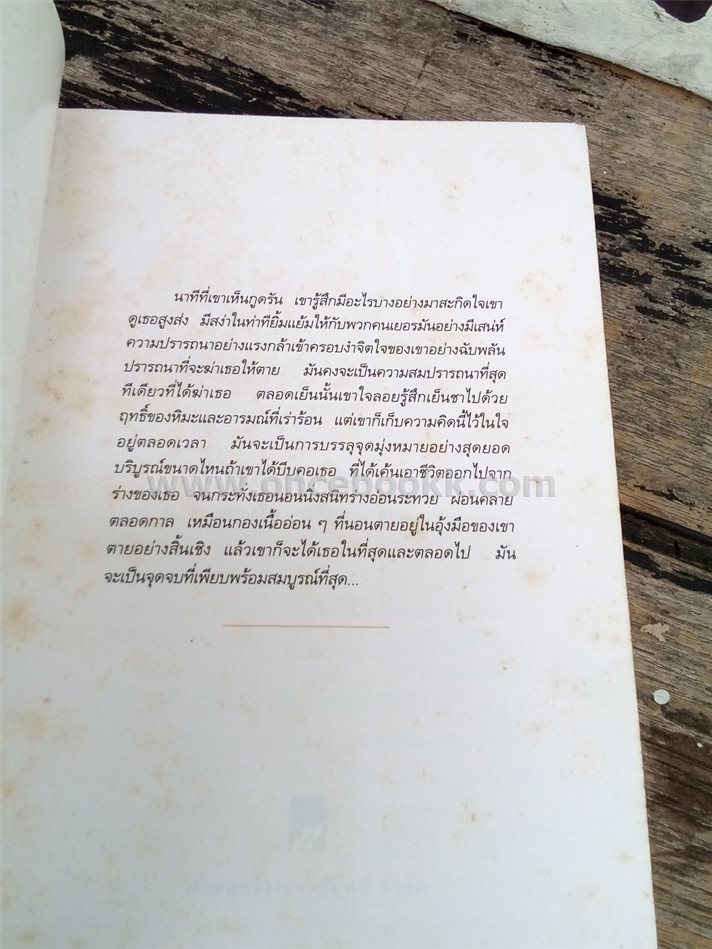 นาทีที่เขาเห็นกูดรัน เขารู้สึกมีอะไรบางอย่างมาสะกิดใจเขา
ดูเธอสูงส่ง มีสง่าในท่าทียิ้มแย้มให้กับพวกคนเยอรมันอย่างมีเสน่ห์
ความปรารถนาอย่างแรงกล้าเข้าครอบงำจิตใจของเขาอย่างฉับพลัน
ปรารถนาที่จะฆ่าเธอให้ตาย มันคงจะเป็นความสมปรารถนาที่สุด
ทีเดียวที่ได้ฆ่าเธอ ตลอดเย็นนั้นเขาใจลอยรู้สึกเย็นชาไปด้วย
ฤทธิ์ของหิมะและอารมณ์ที่เร่าร้อน แต่เขาก็เก็บความคิดนี้ไว้ในใจ
อยู่ตลอดเวลา มันจะเป็นการบรรลุจุดมุ่งหมายอย่างสุดยอด
บริบูรณ์ขนาดไหนถ้าเขาได้บีบคอเธอ ที่ได้เค้นเอาชีวิตออกไปจาก
ร่างของเธอ จนกระทั่งเธอนอนนิ่งสนิทร่างอ่อนระทวย ผ่อนคลาย
ตลอดกาล เหมือนกองเนื้ออ่อน ๆ ที่นอนตายอยู่ในอุ้งมือของเขา
ตายอย่างสิ้นเชิง แล้วเขาก็จะได้เธอในที่สุดและตลอดไป มัน
จะเป็นจุดจบที่เพียบพร้อมสมบูรณ์ที่สุด...
www.oncebookk.com